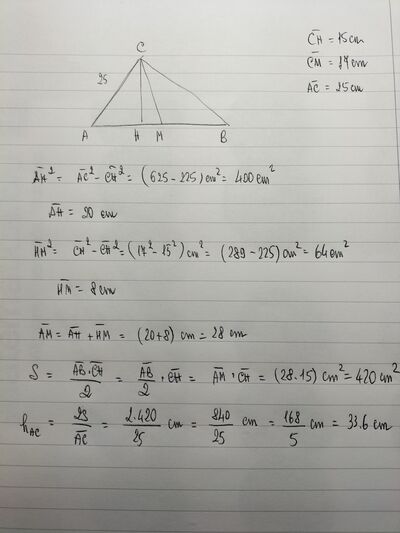 C
25
A H M B
C̅H̅ = 15cm
C̅M̅ = 17cm
A̅C̅ = 25cm
A̅H̅² = A̅C̅² - C̅H̅² = (625 - 225) cm² = 400 cm²
A̅H̅ = 20 cm
H̅M̅² = C̅H̅² - C̅H̅² = (17² - 15²) cm² = (289 - 225) cm² = 64 cm²
H̅M̅ = 8 cm
A̅M̅ = A̅H̅ + H̅M̅ = (20+8) cm = 28 cm
S = A̅B̅·C̅H̅/2 = A̅B̅/2 · C̅H̅ = A̅M̅ · C̅H̅ = (28·15) cm² = 420 cm²
h_AC = 2S/A̅C̅ = 2·420/25 cm = 840/25 cm = 168/5 cm = 33.6 cm